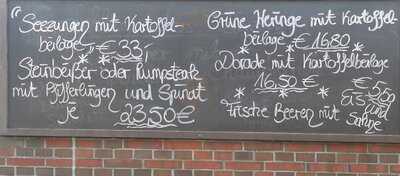 Seezungen mit Kartoffel-
beilage, € 33,-
Steinbeißer oder Rumpsteak
mit Pfifferlingen und Spinat
je 23,50€
Grüne Heringe mit Kartoffel-
beilage € 16,80
Dorade mit Kartoffelbeilage
16,50 €
Frische Beeren mit Eis und
Sahne